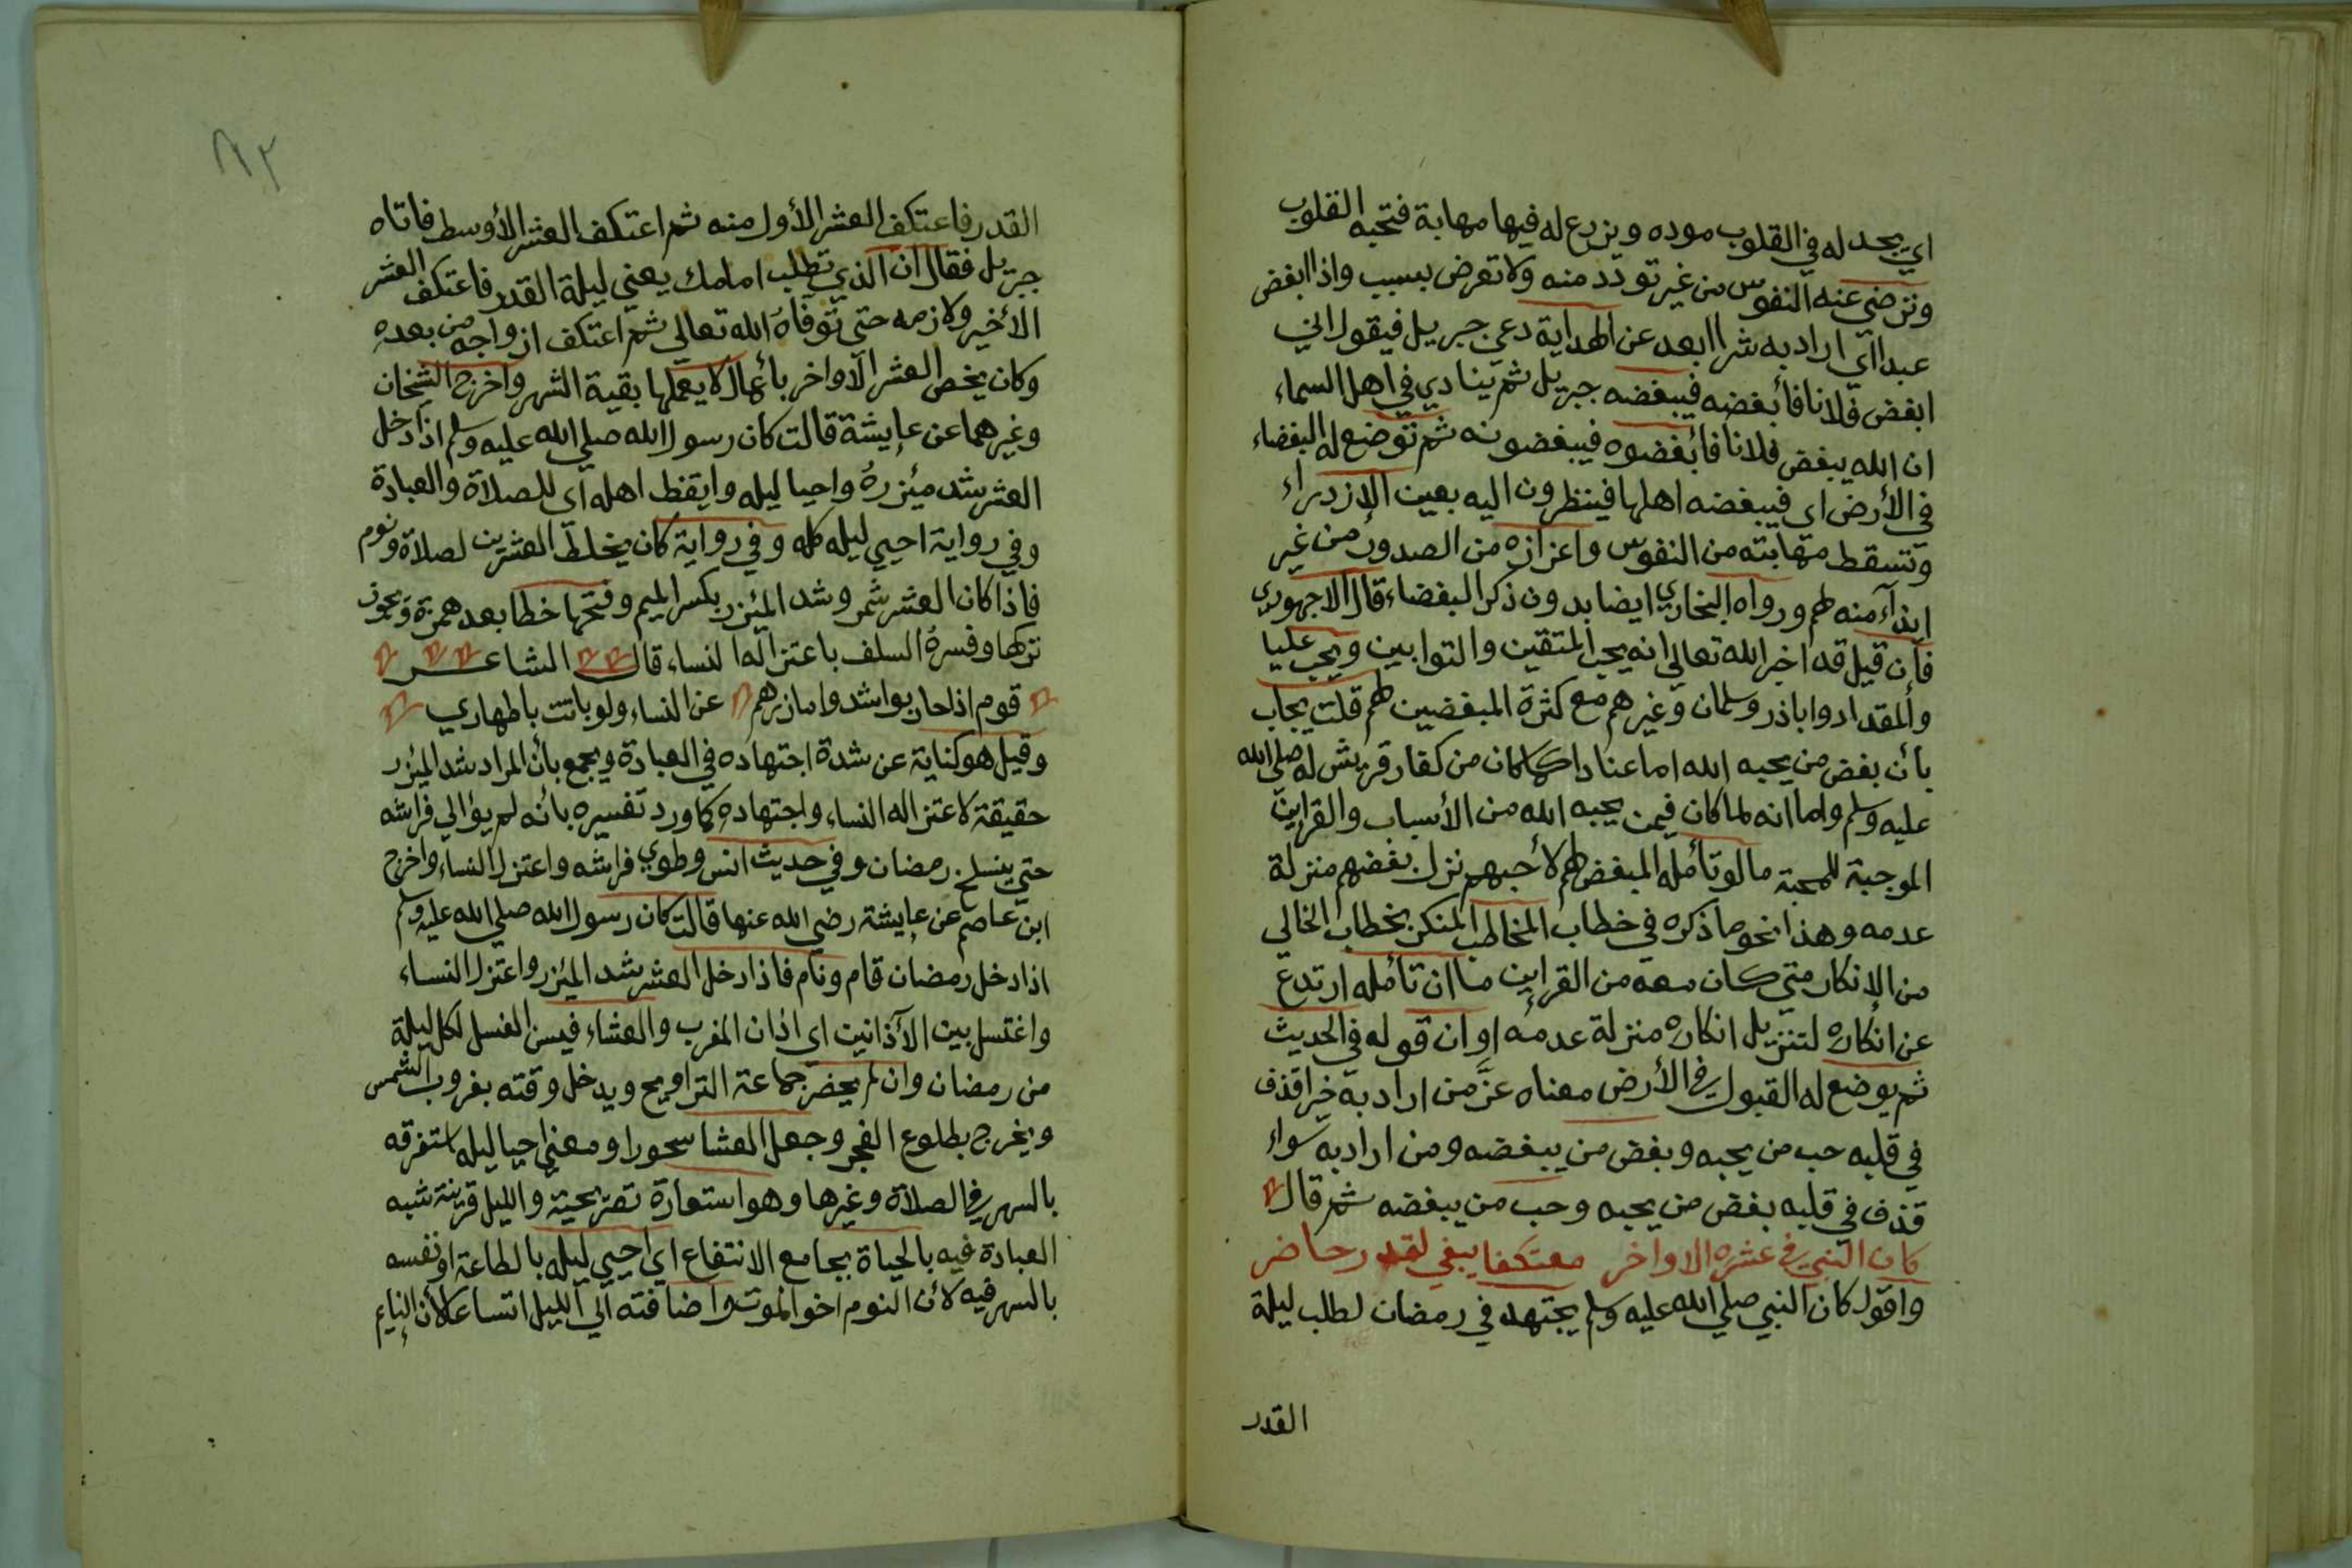 اي يجد له في القلوب موده ويزرع له فيها مهابة فتحبه القلوب
وترضي عنه النفوس من غير تودد منه ولا تعرض بسبب واذا ابغض
عبدا اي اراد به شرا ابعد عن الهداية دعي جبريل فيقول اني
ابغض فلانا فأبغضه فيبغضه جبريل ثم ينادي في اهل السماء
ان الله يبغض فلانا فأبغضوه فيبغضونه ثم توضع له البغضاء
في الأرض اي فيبغضه اهلها فينظرون اليه بعين الازدراء
وتسقط مهابته من النفوس واعزازه من الصدور من غير
ايذاء منه لهم ورواه البخاري ايضا بدون ذكر البغضاء قال الاجهوري
فان قيل قد اخبر الله تعالي انه يحب المتقين والتوابين ويحب عليا
والمقداد وابا ذر وسلمان وغيرهم مع كثرة المبغضين لهم قلت يجاب
بأن بغض من يحبه الله اما عنادا كما كان من كفار قريش له صلي الله
عليه وسلم واما انه لما كان فيمن يحبه الله من الأسباب والقراين
الموجبة للمحبة ما لو تأمله المبغض لهم لأحبهم نزل بغضهم منزلة
عدمه وهذا نحو ما ذكره في خطاب المخاطب المنكر بخطاب الخالي
من الإنكار متي كان معه من القراين ما ان تأمله ارتدع
عن انكاره لتنزيل انكاره منزلة عدمه او ان قوله في الحديث
ثم يوضع له القبول في الأرض معناه عزَّ من اراد به خيرا قذف
في قلبه حب من يحبه وبغض من يبغضه ومن اراد به سواء
قذف في قلبه بغض من يحبه وحب من يبغضه ثم قال
كان النبي في عشره الاواخر معتكفا يبغي لقدر حاضر
واقول كان النبي صلي الله عليه وسلم يجتهد في رمضان لطلب ليلة
القدر
٨٢
القدر فاعتكف العشر الأول منه ثم اعتكف العشر الأوسط فاتاه
جبريل فقال ان الذي تطلب امامك يعني ليلة القدر فاعتكف العشر
الأخير ولازمه حتي توفاه الله تعالي ثم اعتكف ازواجه من بعده
وكان يخص العشر الاواخر بأعمال لا يعملها بقية الشهر واخرج الشيخان
وغيرهما عن عايشة قالت كان رسول الله صلي الله عليه وسلم اذا دخل
العشر شد مئزره واحيا ليله وايقظ اهله اي للصلاة والعبادة
وفي رواية احيي ليله كله وفي رواية كان يخلط العشرين لصلاة ونوم
فاذا كان العشر شمر وشد المئزر بكسر الميم وفتحها خطا بعد همزة ويجوز
تركها وفسره السلف باعتزاله النساء قال الشاعر
قوم اذا حاربوا شدوا مازرهم عن النساء ولو باتت باطهاري
وقيل هو كناية عن شدة اجتهاده في العبادة ويجمع بأن المراد شد المئزر
حقيقة لاعتزاله النساء واجتهاده كما ورد تفسيره بأنه لم يؤالي فراشه
حتي ينسلخ رمضان وفي حديث انس وطوي فراشه واعتزل النساء واخرج
ابن عاصم عن عايشة رضي الله عنها قالت كان رسول الله صلي الله عليه وسلم
اذا دخل رمضان قام ونام فاذا دخل العشر شد المئزر واعتزل النساء
واغتسل بين الأذانين اي اذان المغرب والعشاء فيسن الغسل لكل ليلة
من رمضان وان لم يحضر جماعة التراويح ويدخل وقته بغروب الشمس
ويخرج بطلوع الفجر وجعل العشا سحورا ومعني احيا ليله استغرقه
بالسهر في الصلاة وغيرها وهو استعارة تصريحية والليل قرينة شبه
العبادة فيه بالحياة بجامع الانتفاع اي احيي ليله بالطاعة او نفسه
بالسهر فيه لأن النوم اخو الموت واضافته الي الليل اتساعا لأن النايم